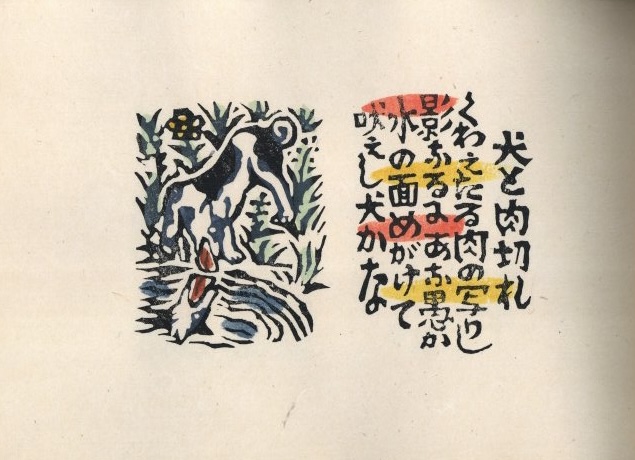 犬と肉切れ
くわえたる肉の写りし
影なるにあな愚か
水の面めがけて
吠えし犬かな